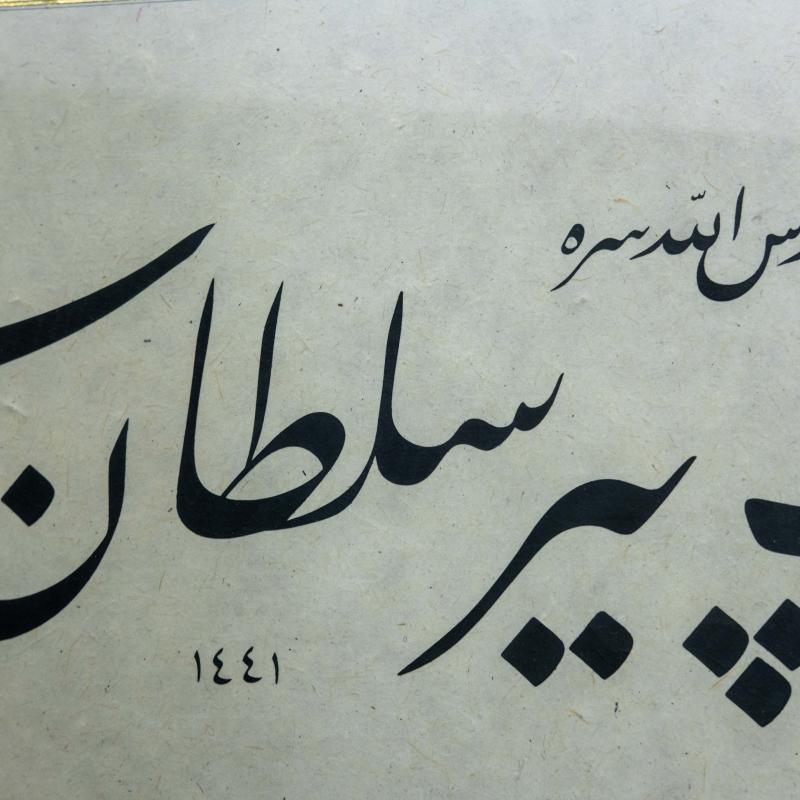 الله سره
پير سلطان
١٤٤١